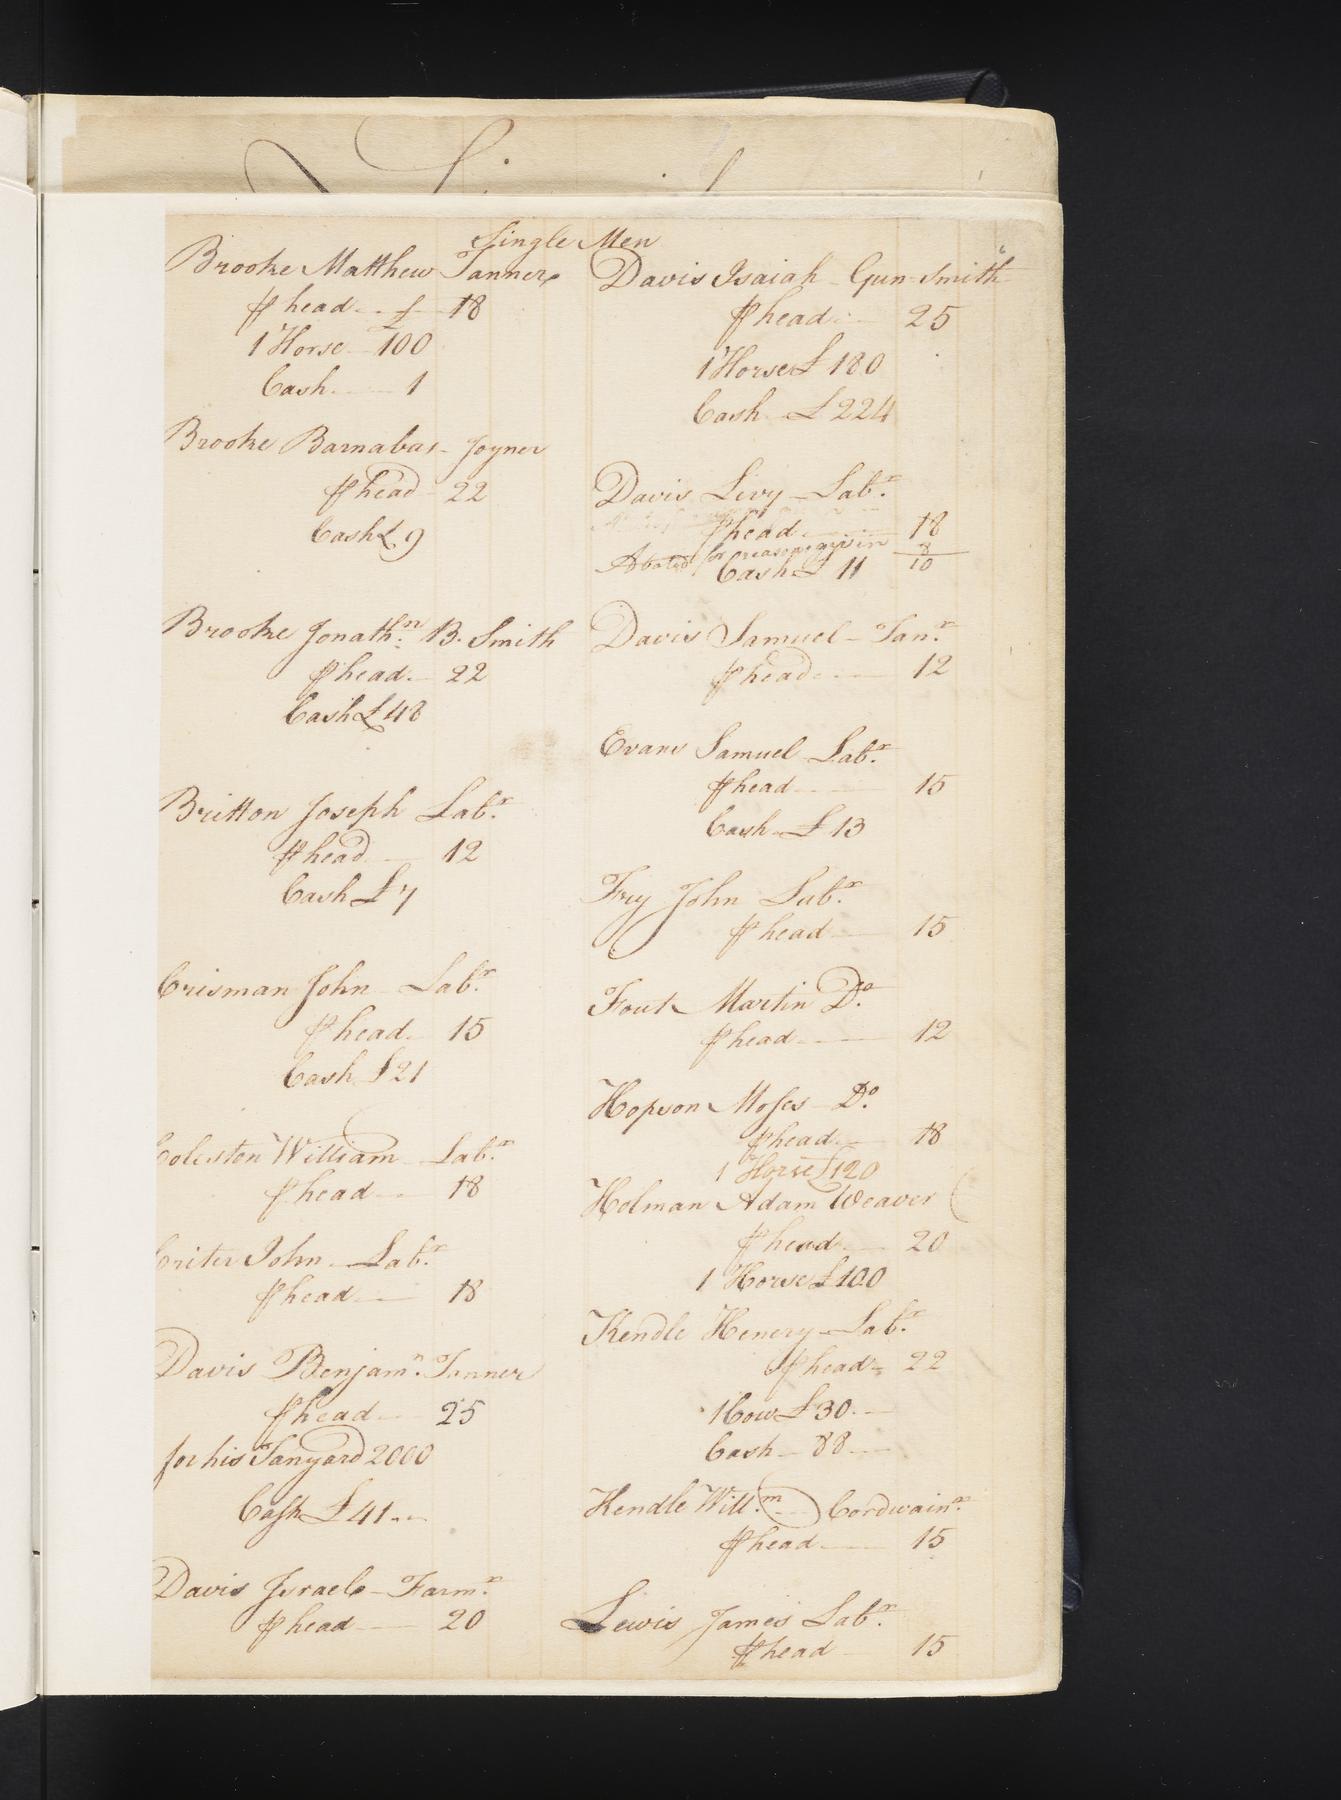 Single Men
Brooke Matthew Tanner
⅌ head £ 18
1 Horse 100
Cash 1
Brooke Barnabas Joyner
⅌ head 22
Cash £ 9
Brooke Jonathn. B. Smith
⅌ head 22
Cash £ 48
Britton Joseph Labr.
⅌ head 12
Cash £ 7
Crisman John Labr.
⅌ head 15
Cash £ 21
Coleston William Labr.
⅌ head 18
Criter John Labr.
⅌ head 18
Davis Benjamn. Tanner
⅌ head 25
for his Tanyard 2000
Cash £ 41
Davis Israel Farmr.
⅌ head 20
Davis Isaiah Gun-Smith
⅌ head 25
1 Horse £ 180
Cash £ 224
Davis Livy Labr.
⅌ head 18
Abated for reasons given 8
Cash £ 11 10
Davis Samuel Tanr.
⅌ head 12
Evans Samuel Labr.
⅌ head 15
Cash £ 13
Fry John Labr.
⅌ head 15
Fout Martin Do.
⅌ head 12
Hopson Moses Do.
⅌ head 18
1 Horse £ 120
Holman Adam Weaver
⅌ head 20
1 Horse £ 100
Kendle Henery Labr.
⅌ head 22
1 Cow £ 30
Cash 88
Kendle Willm. Cordwainr.
⅌ head 15
Lewis James Labr.
⅌ head 15